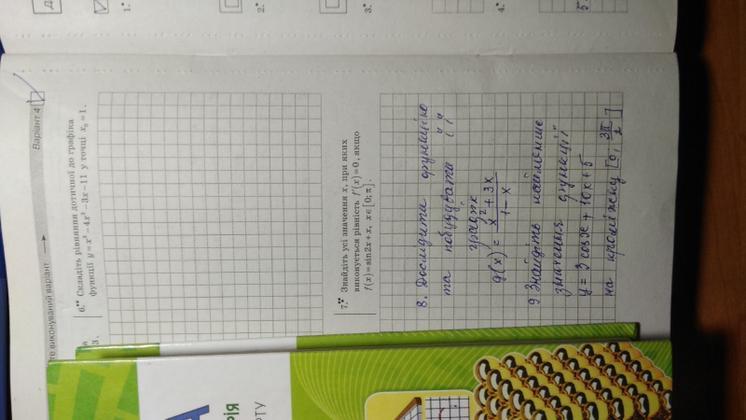 Варіант 4
те виконуваний варіант
6.•• Складіть рівняння дотичної до графіка
функції y = x³ − 4x² − 3x − 11 у точці x₀ = 1.
7.•• Знайдіть усі значення x, при яких
виконується рівність f′(x) = 0, якщо
f(x) = sin2x + x, x ∈ [0; π].
8. Дослідити функцію
та побудувати її
графік
g(x) = (x² + 3x)/(1 − x)
9 Знайдіть найбільше
значення функції
y = 2 cos x + 10x + 5
на проміжку [0; 3π/2]
1.•
2.•
3.•
4.•
3.
РІЯ
РТУ